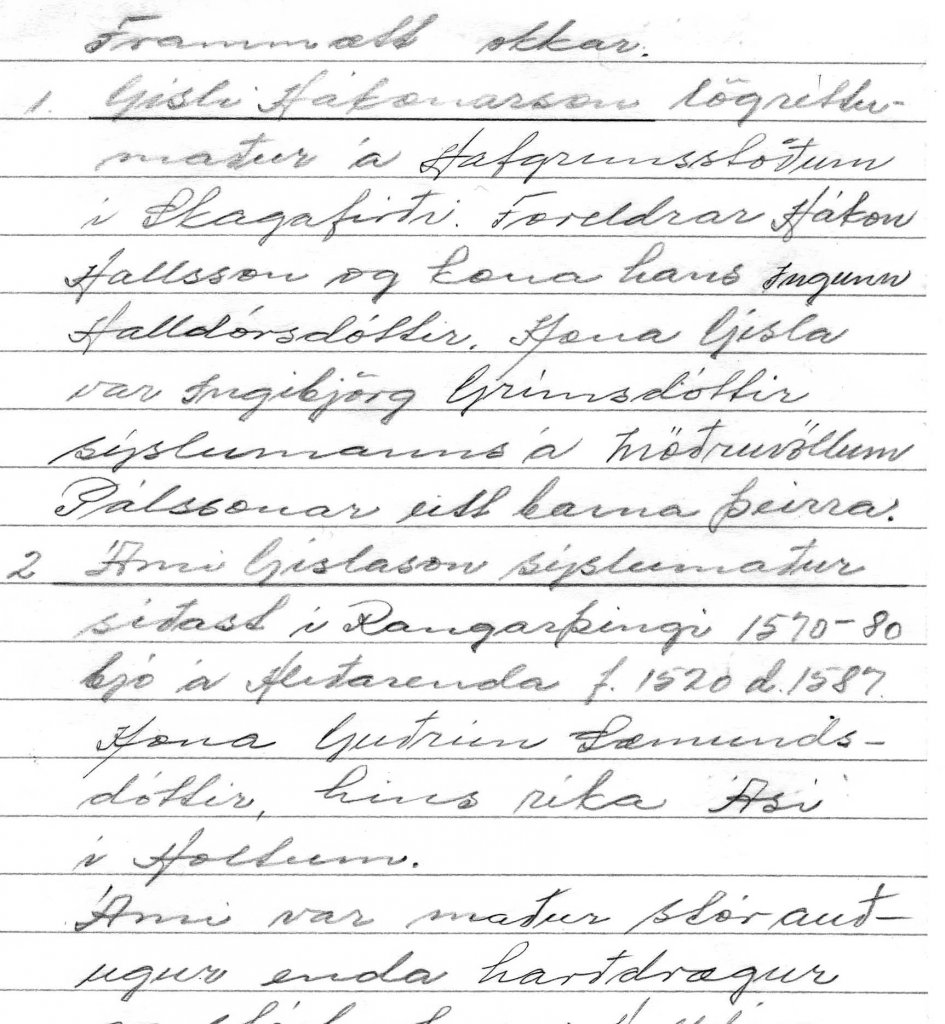 Frammætt okkar.
1. Gísli Hákonarson lögréttu-
maður á Hafgrunsstöðum
í Skagafirði. Foreldrar Hákon
Hallsson og kona hans Ingunn
Halldórsdóttir. Kona Gísla
var Ingibjörg Grímsdóttir
sýslumanns á Möðruvöllum
Pálssonar eitt barna þeirra.
2 Árni Gíslason sýslumaður
síðast í Rangarþingi 1570-80
bjó á Hlíðarenda f. 1520 d. 1587.
Kona Guðrún Sæmunds-
dóttir, hins ríka Ási
í Holtum.
Árni var maður stór auð-
ugur enda harðdrægur